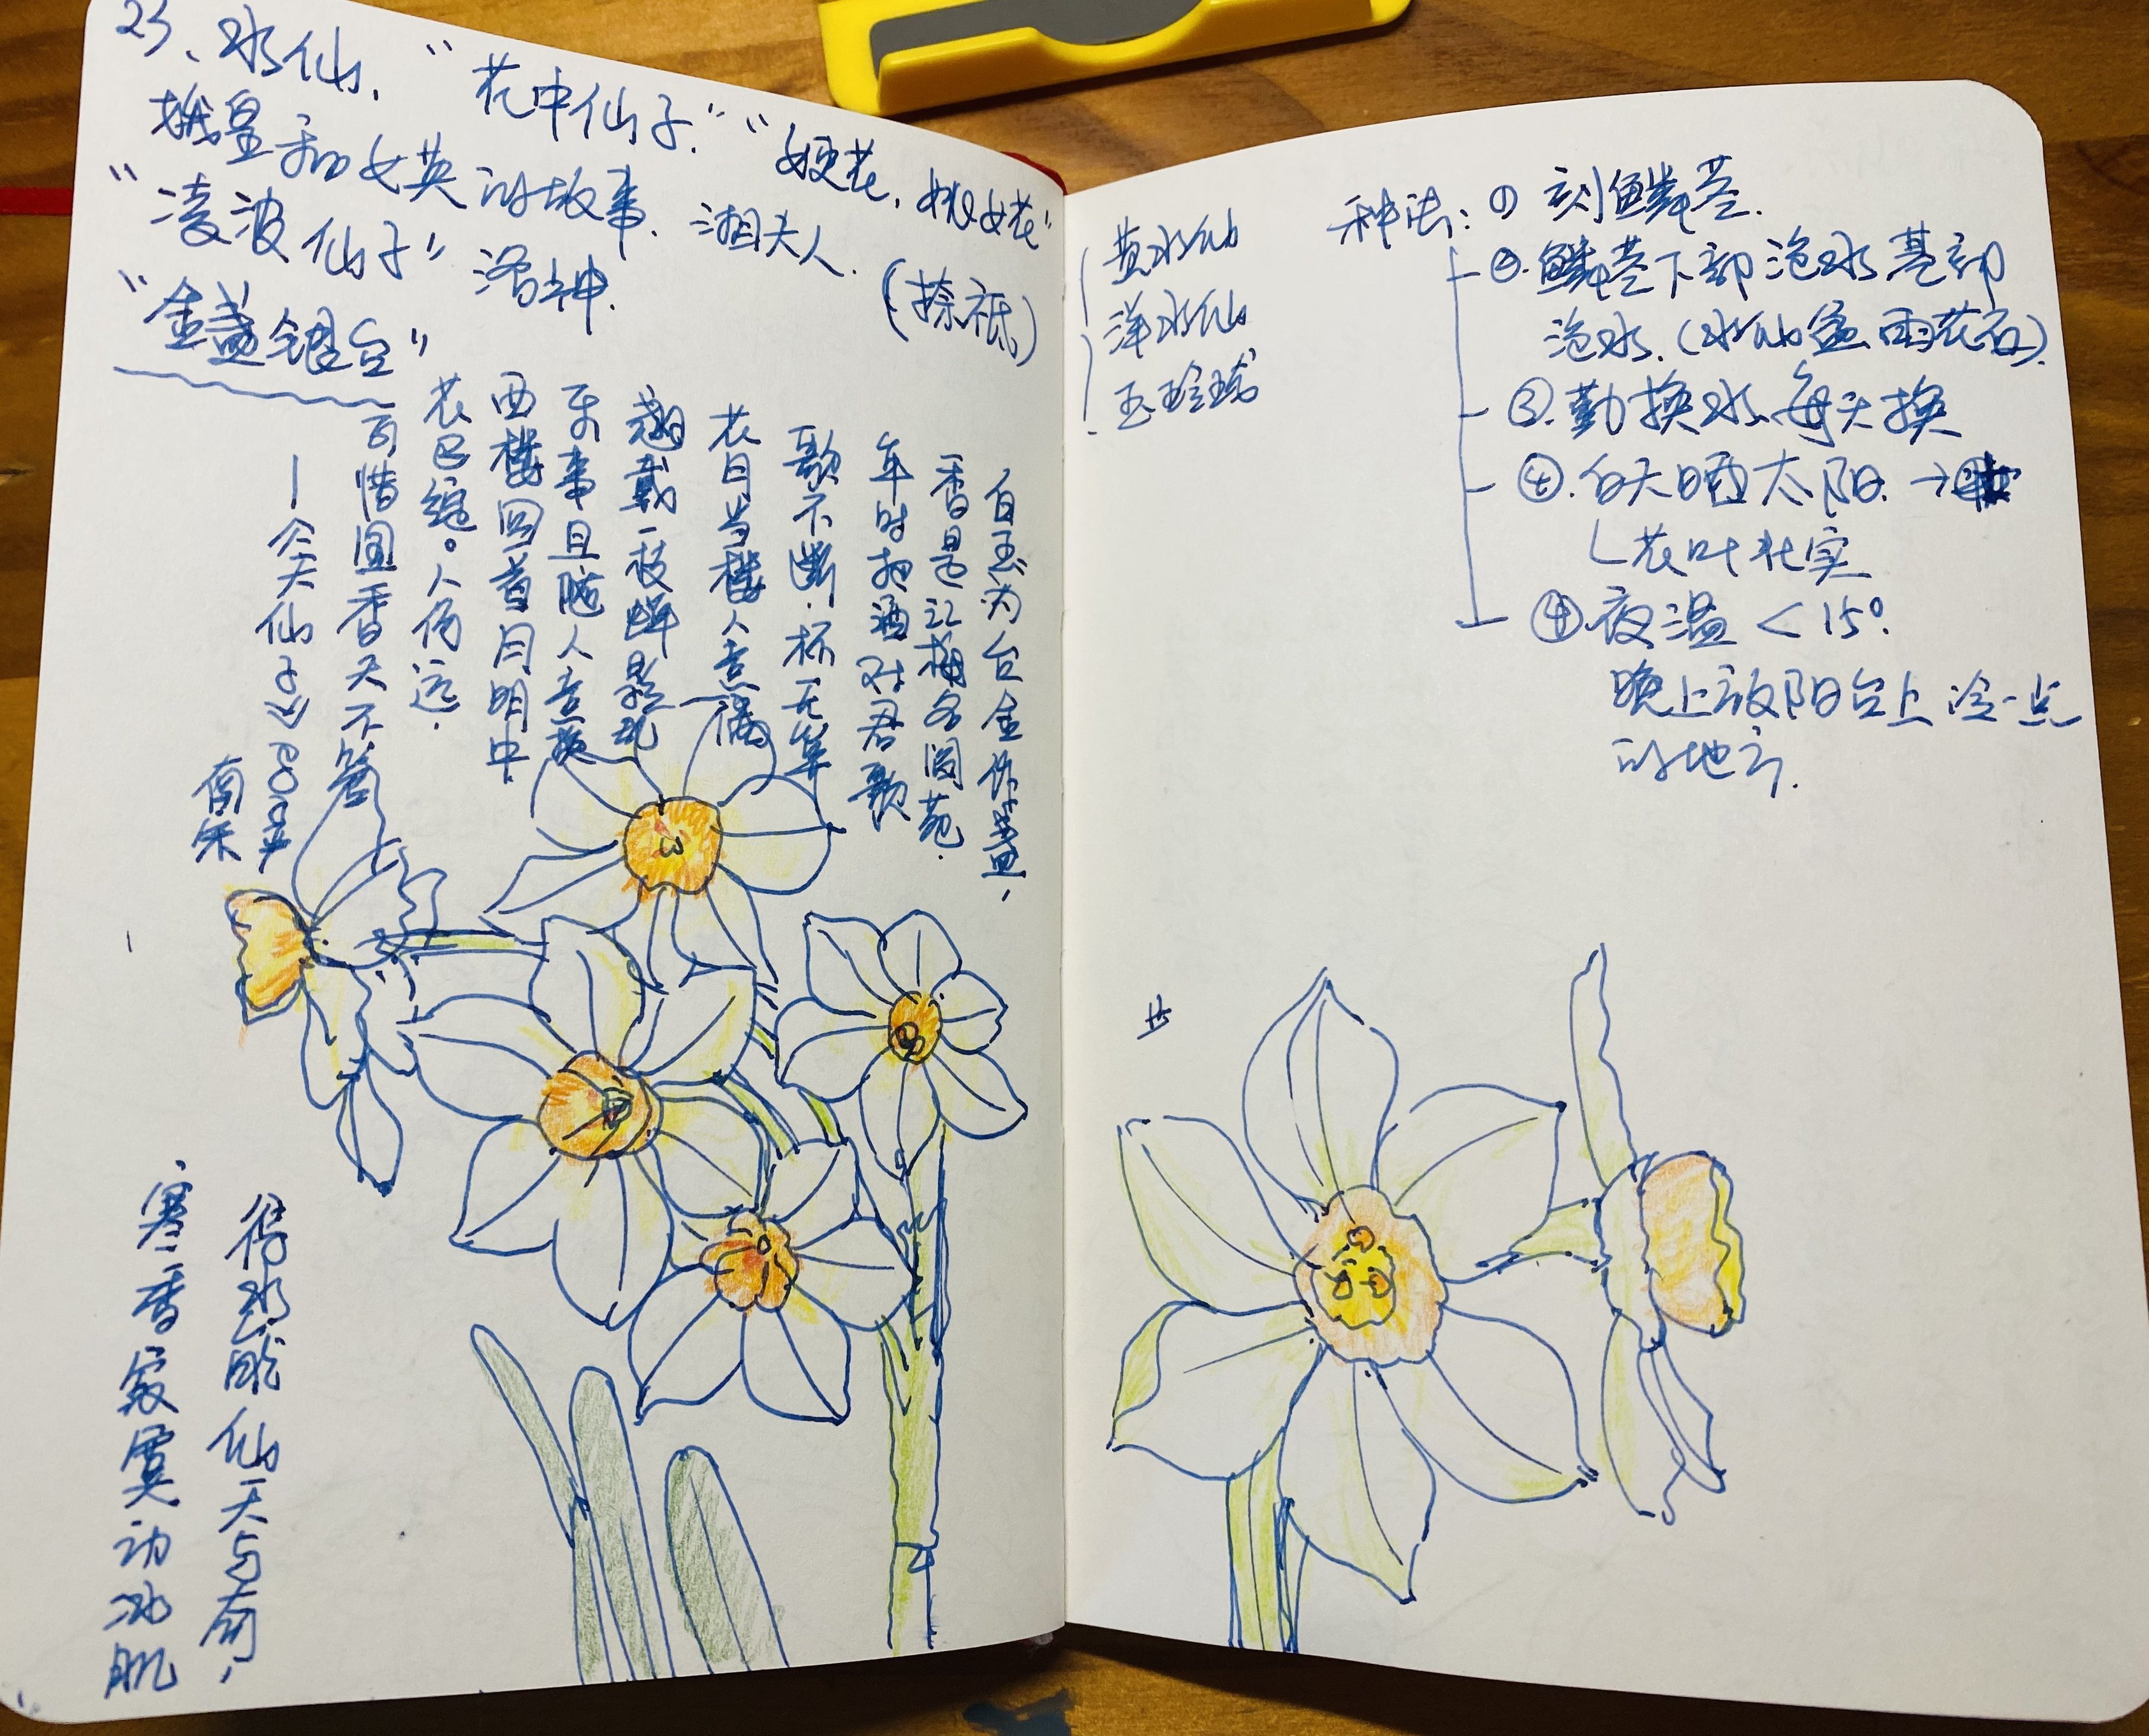 23、水仙、“花中仙子”“姚花，姚女花”
娥皇和女英的故事．湘夫人．
“凌波仙子”洛神．
(捺祗)
“金盏银台”
白玉为台金作盏，
香是江梅名阆苑．
年时把酒对君歌
歌不断．杯无算
花日当楼人意满
翘戴一枝蝉影乱
乐事且随人意换
西楼回首月明中
花已绽。人何远．
可惜国香天不管
—
南宋
得水能仙天与奇，
寒香寂寞动冰肌
黄水仙
洋水仙
玉玲珑
种法：① 刻鳞茎．
②．鳞茎下部泡水基部
泡水．(水仙盆、雨花石)．
③．勤换水、每天换
④．白天晒太阳．→
└花叶壮实
④夜温＜15°．
晚上放阳台上冷一点
的地方．